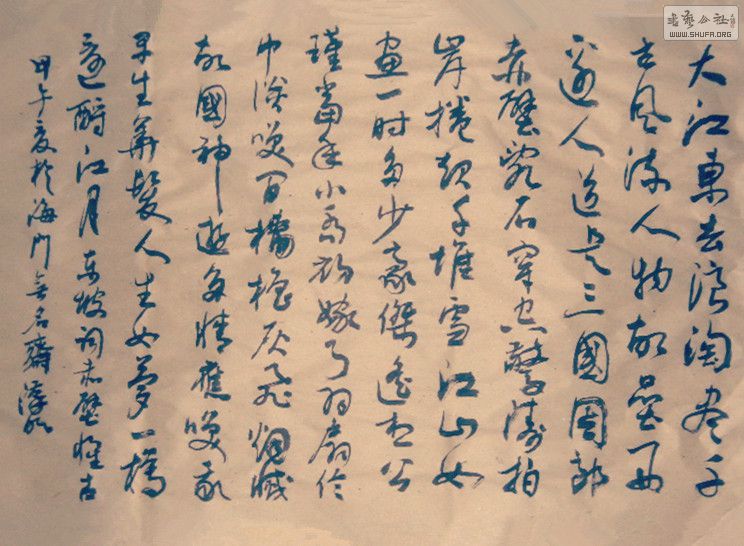 大江東去浪淘盡千
古風流人物故壘西
邊人道是三國周郎
赤壁亂石穿空驚濤拍
岸捲起千堆雪江山如
畫一時多少豪傑遙想公
瑾當年小喬初嫁了羽扇綸
巾談笑間檣櫓灰飛烟滅
故國神遊多情應笑我
早生華髮人生如夢一樽
還酹江月東坡詞赤壁懷古
甲午夏於海門無名齋
書藝公社
WWW.SHUFA.ORG